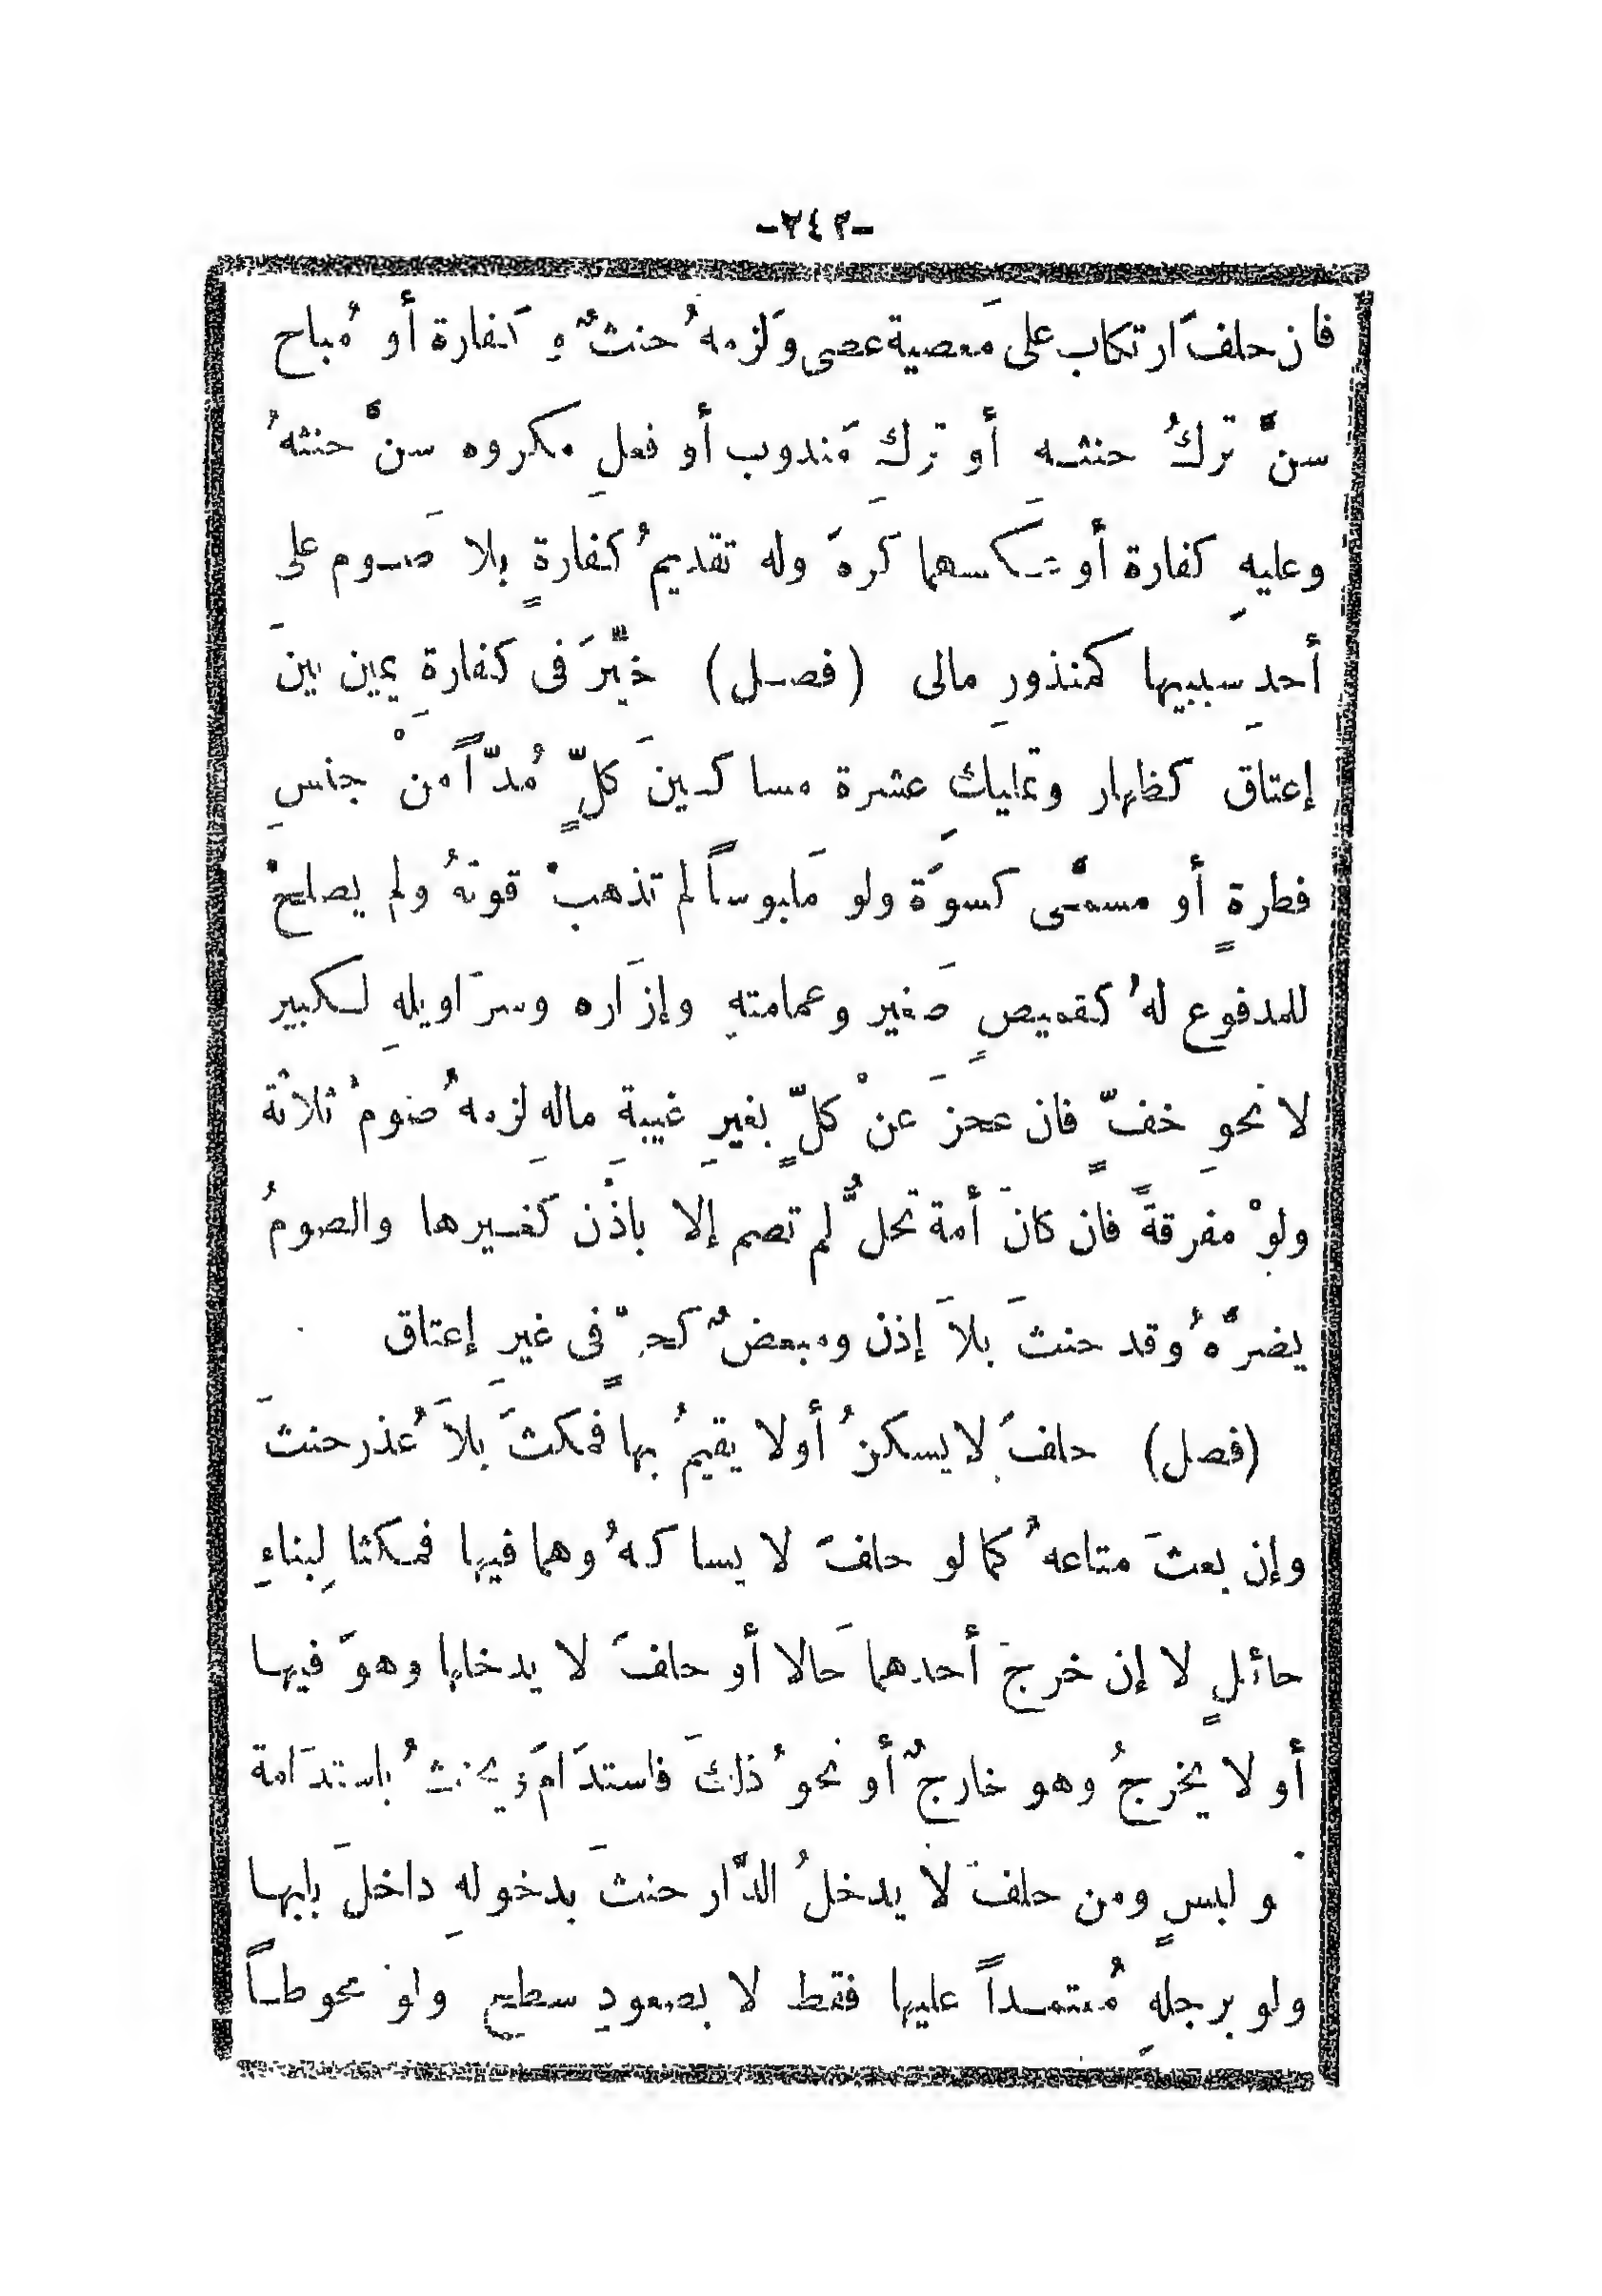 -٢٤٢-
فان حلفَ ارتكاب على مَعصية عصى وَلزمهُ حنثٌ وَ كفارة أو مُباح
سنَّ تركُ حنثه أو تركِ مَندوب أو فعلِ مكروه سنَّ حنثهُ
وعليهِ كفارة أو عكسهما كَرهَ وله تقديمُ كفارةٍ بلا صَوم على
أحدِ سببيها كمنذورِ مالى (فصل) خيِّرَ فى كفارةِ يمين بينَ
إعتاق كظهار وتمليكِ عشرة مساكينَ كلٍّ مُدّاً منْ جنسِ
فطرةٍ أو مسمَّى كسوَة ولو مَلبوساً لم تذهبْ قوتهُ ولم يصلحْ
للمدفوعِ لهُ كقميصٍ صَغير وعمامتهِ وإزَاره وسرَاويلهِ لكبير
لا نحوِ خفٍّ فان عجزَ عنْ كلٍّ بغيرِ غيبةِ مالهِ لزمهُ صَومُ ثلاثة
ولوْ مفرقةً فان كانَ أمة تحلُّ لم تصم إلا باذْن كغيرها والصومُ
يضرُّهُ وقد حنثَ بلاَ إذن ومبعضٌ كحرٍّ فى غيرِ إعتاق
(فصل) حلفَ لا يسكنُ أولا يقيمُ بها فمكثَ بلاَ عُذر حنثَ
وإن بعثَ متاعهُ كما لو حلفَ لا يساكنهُ وهما فيها فمكثا لِبناءِ
حائلٍ لا إن خرجَ أحدهما حَالا أو حلفَ لا يدخلها وهوَ فيها
أو لا يخرجُ وهو خارجٌ أو نحوُ ذلكَ فاستدَامَ ويحنثُ باستدَامة
نحو لبسٍ ومن حلفَ لا يدخلُ الدَّار حنثَ بدخولهِ دَاخلَ بابها
ولو برجلهِ مُعتمداً عليها فقط لا بصعودِ سطحٍ ولوْ محوطاً